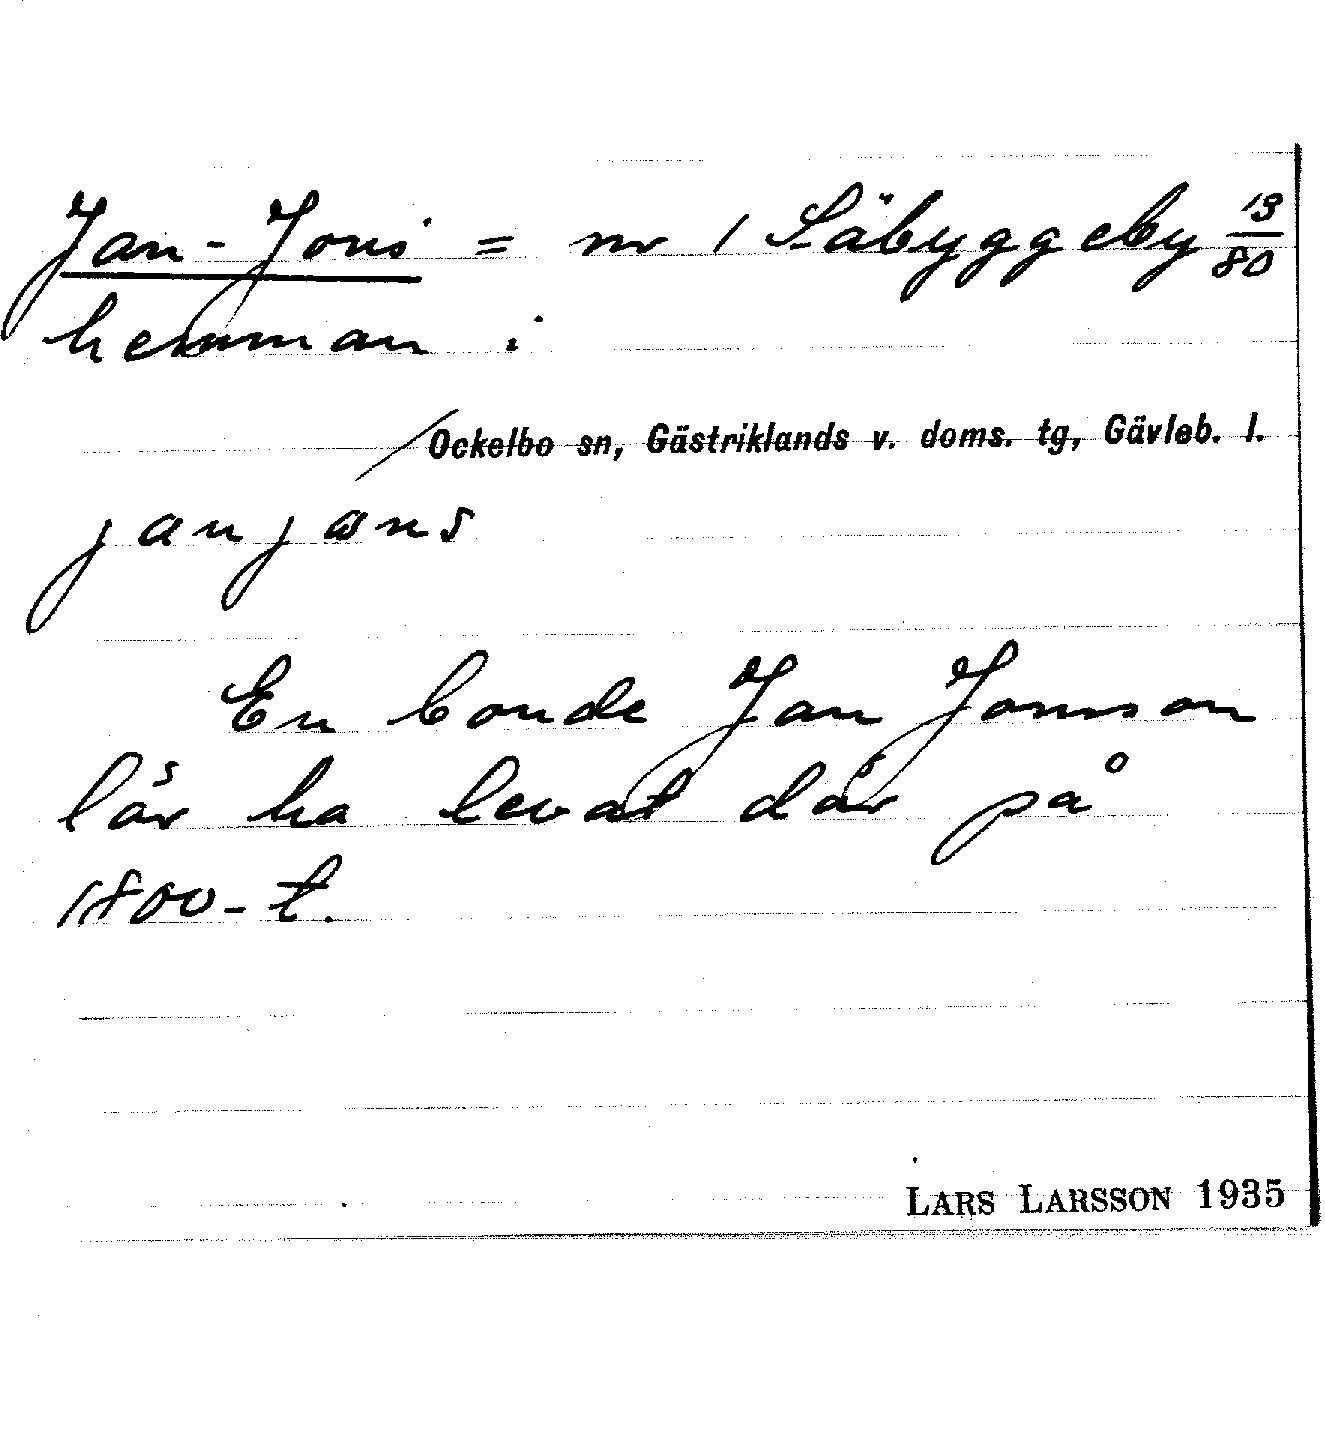 Jan-Jons = nr 1 Säbyggeby 13/80
hemman i
Ockelbo sn, Gästriklands v. doms. tg, Gävleb. l.
En bonde Jan Jonsson
lär ha levat där på
1800-t.
LARS LARSSON 1935